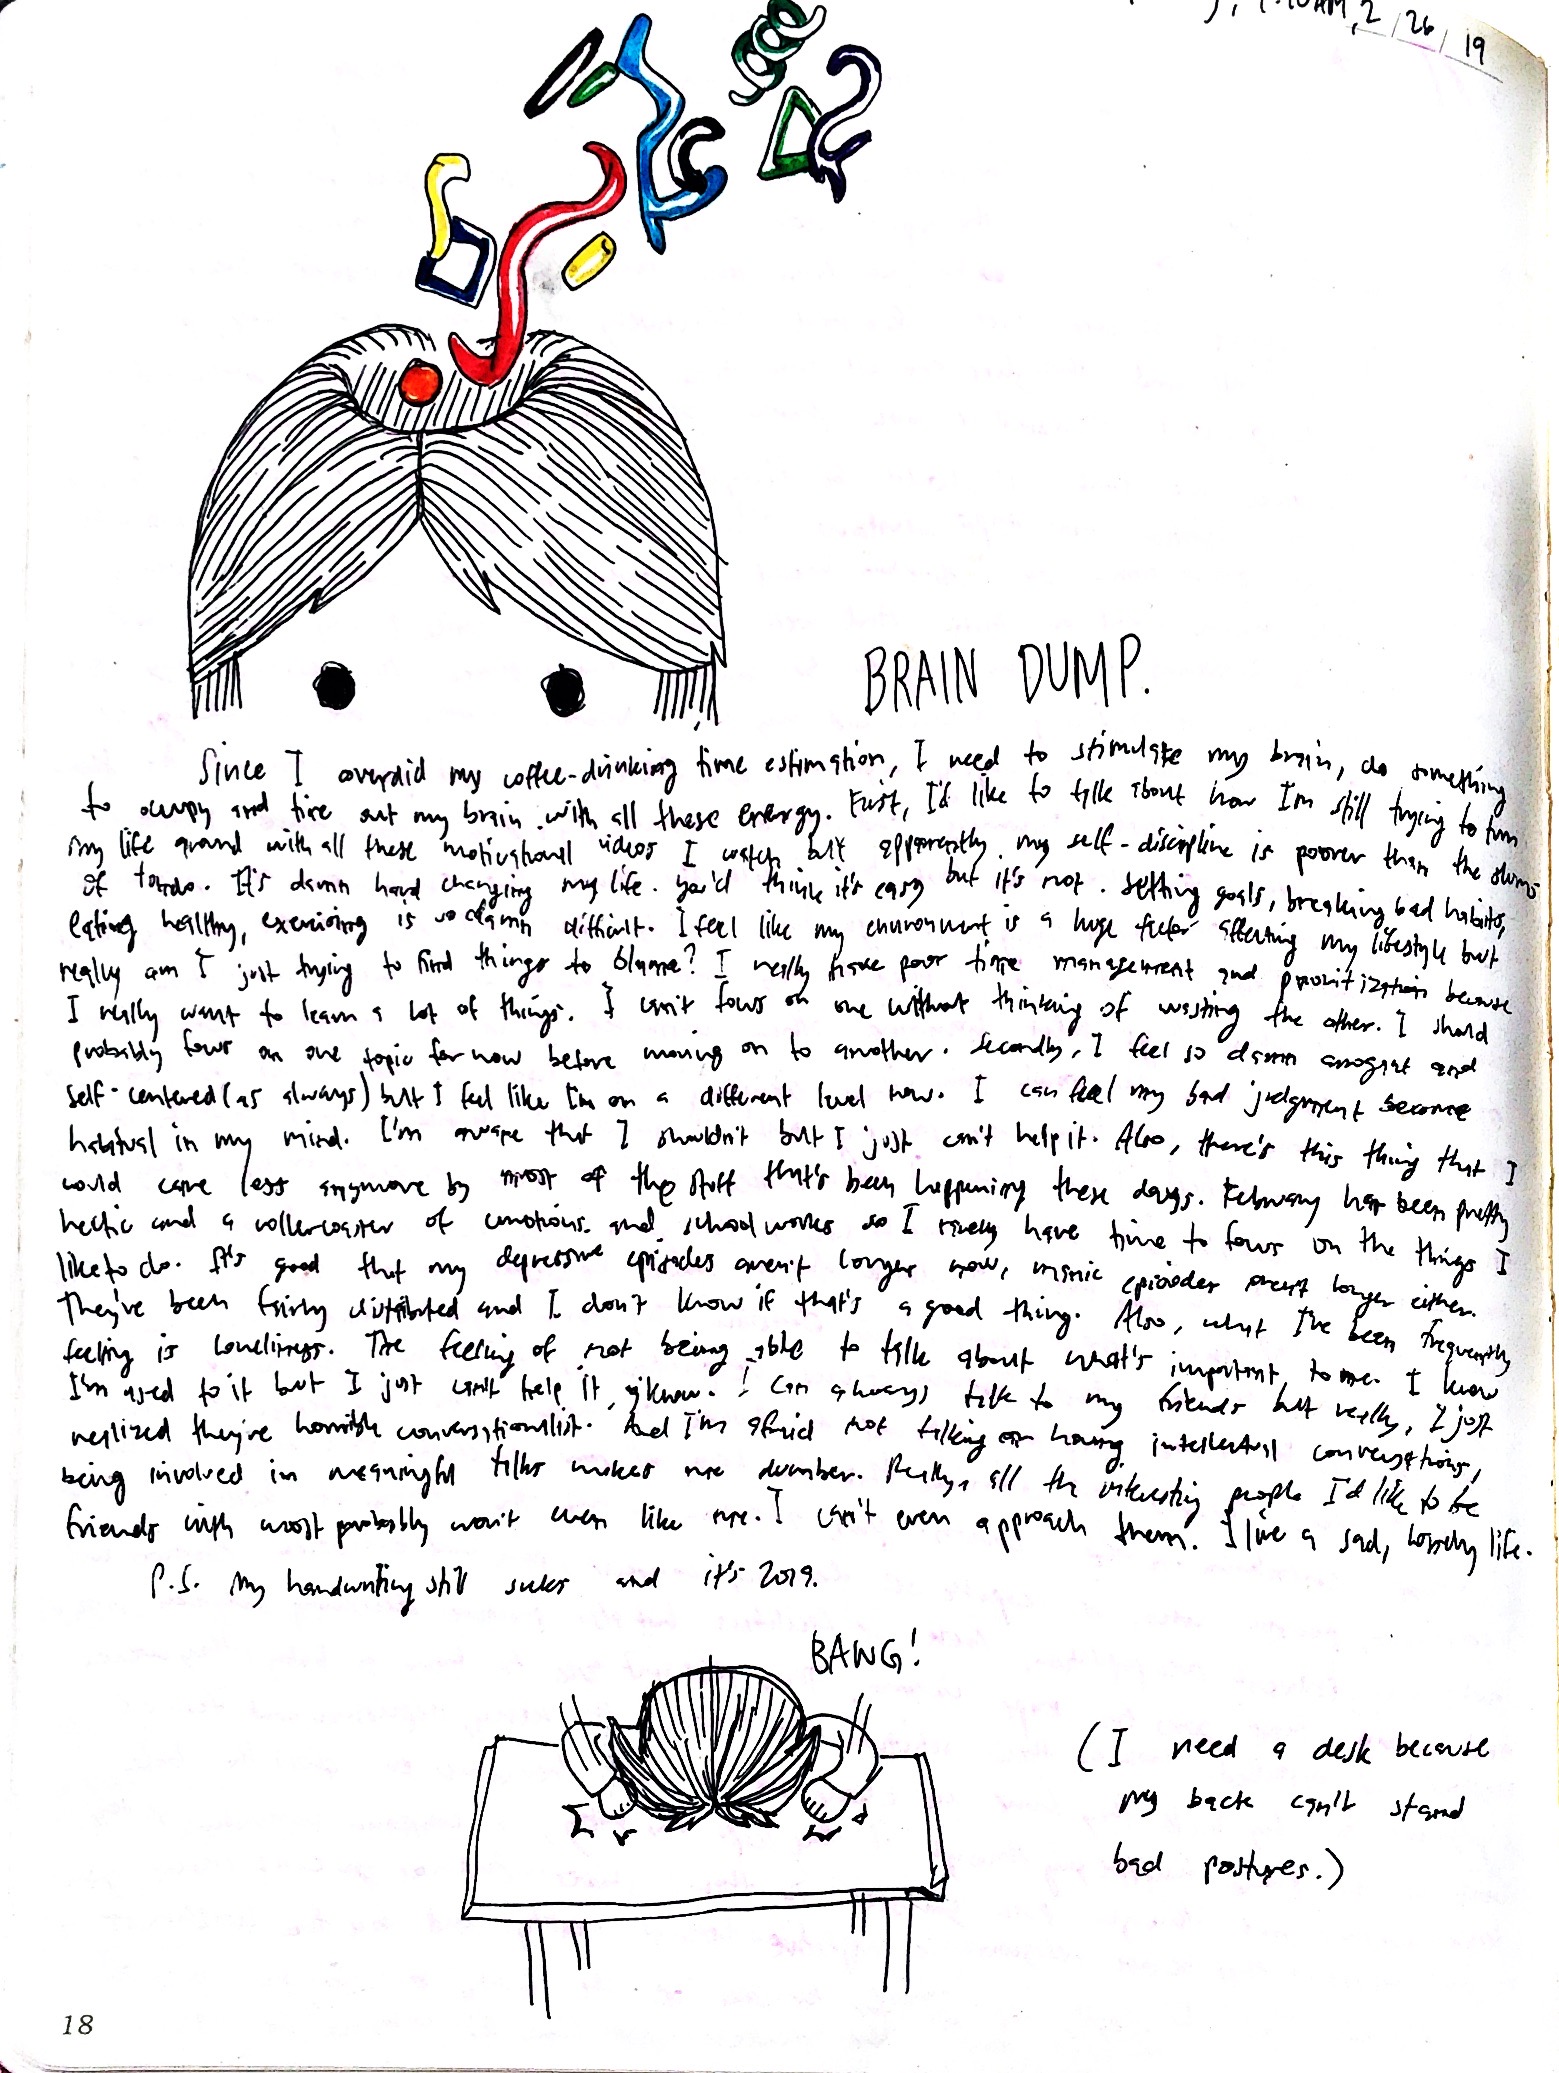 AM, 2/26/19
BRAIN DUMP.
Since I overdid my coffee-drinking time estimation, I need to stimulate my brain, do something
to occupy and tire out my brain with all these energy. First, I'd like to talk about how I'm still trying to turn
my life around with all these motivational videos I watch but apparently my self-discipline is poorer than the slums
of Tondo. It's damn hard changing my life. You'd think it's easy but it's not. Setting goals, breaking bad habits,
eating healthy, exercising is so damn difficult. I feel like my environment is a huge factor affecting my lifestyle but
really am I just trying to find things to blame? I really have poor time management and prioritization because
I really want to learn a lot of things. I can't focus on one without thinking of wasting the other. I should
probably focus on one topic for now before moving on to another. Secondly, I feel so damn arrogant and
self-centered (as always) but I feel like I'm on a different level now. I can feel my bad judgment become
habitual in my mind. I'm aware that I shouldn't but I just can't help it. Also, there's this thing that I
could care less anymore by most of the stuff that's been happening these days. February has been pretty
hectic and a rollercoaster of emotions and schoolworks so I rarely have time to focus on the things I
like to do. It's good that my depressive episodes aren't longer now, manic episodes aren't longer either.
They've been fairly distributed and I don't know if that's a good thing. Also, what I've been frequently
feeling is loneliness. The feeling of not being able to talk about what's important to me. I know
I'm used to it but I just can't help it, y'know. I can always talk to my friends but really, I just
realized they're horrible conversationalist. And I'm afraid not talking or having intellectual conversations,
being involved in meaningful talks makes me dumber. Really, all the interesting people I'd like to be
friends with most probably won't even like me. I can't even approach them. I live a sad, lonely life.
P.S. My handwriting still sucks and it's 2019.
BANG!
(I need a desk because
my back can't stand
bad postures.)
18